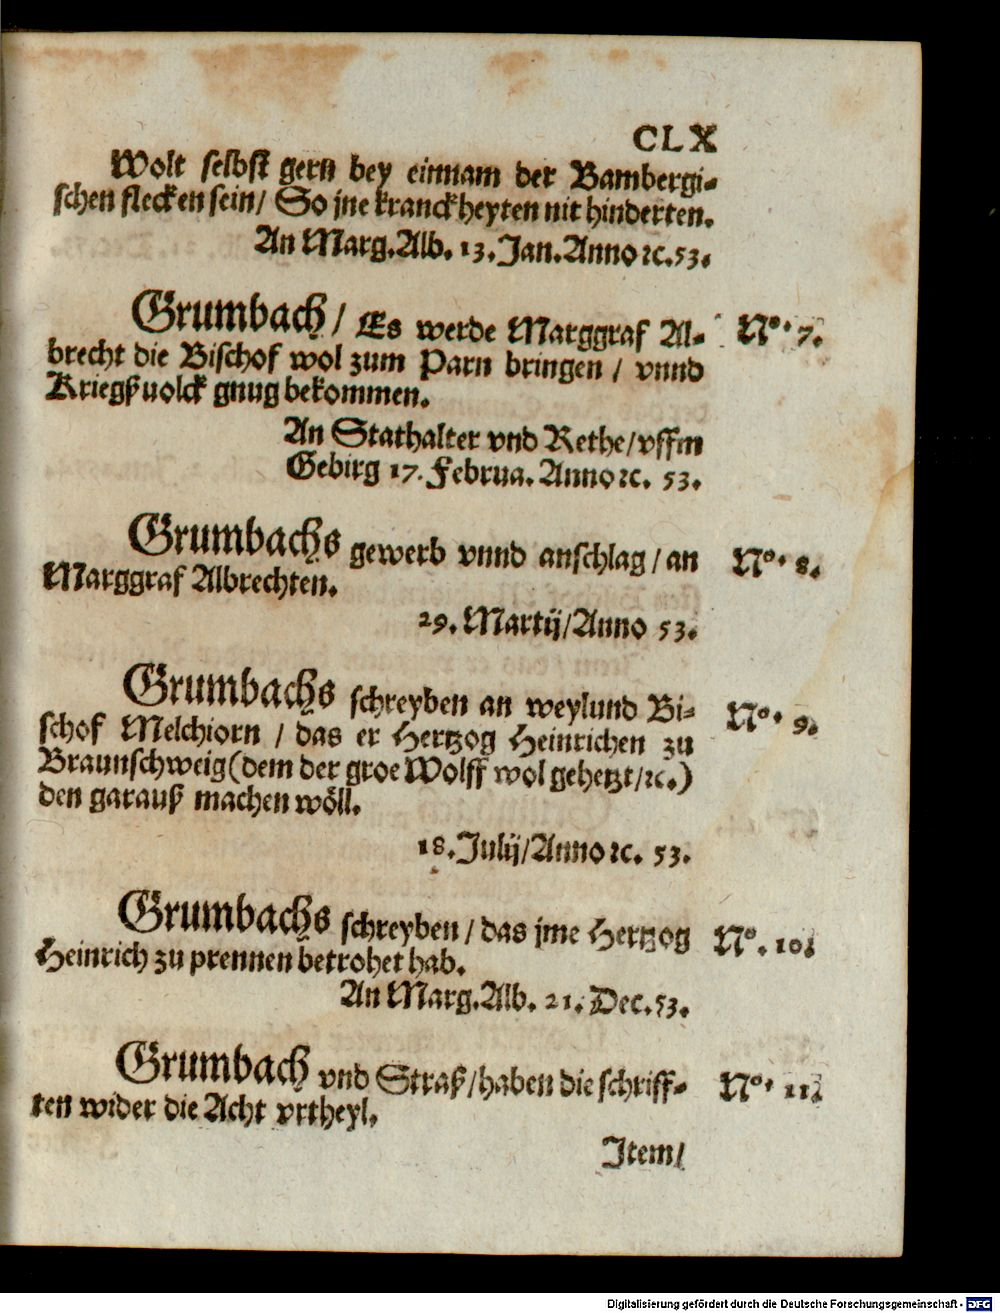 CLX
Wolt selbst gern bey einnam der Bambergi-
schen flecken sein/ So jne kranckheyten nit hinderten.
An Marg. Alb. 13. Jan. Anno ꝛc. 53.
Grumbach/ Es werde Marggraf Al- No. 7.
brecht die Bischof wol zum Parn bringen / vnnd
Kriegßuolck gnug bekommen.
An Stathalter vnd Rethe/vffm
Gebirg 17. Februa. Anno ꝛc. 53.
Grumbachs gewerb vnnd anschlag/an No. 8.
Marggraf Albrechten.
29. Martij/Anno 53.
Grumbachs schreyben an weylund Bi- No. 9.
schof Melchiorn / das er Hertzog Heinrichen zu
Braunschweig(dem der groe Wolff wol gehetzt/ꝛc.)
den garauß machen wöll.
18. Julij/Anno ꝛc. 53.
Grumbachs schreyben/das jme Hertzog No. 10.
Heinrich zu prennen betrohet hab.
An Marg. Alb. 21. Dec. 53.
Grumbach vnd Straß/haben die schriff- No. 11.
ten wider die Acht vrtheyl.
Item/
Digitalisierung gefördert durch die Deutsche Forschungsgemeinschaft - DFG